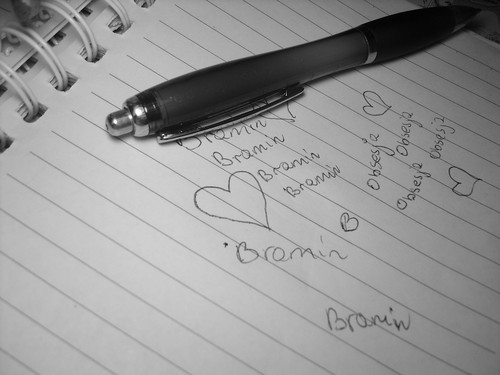 Bramin
Bramin
Bramin
Bramin
Bramin
B
Bramin
Obsesja
Obsesja
Obsesja
Obsesja